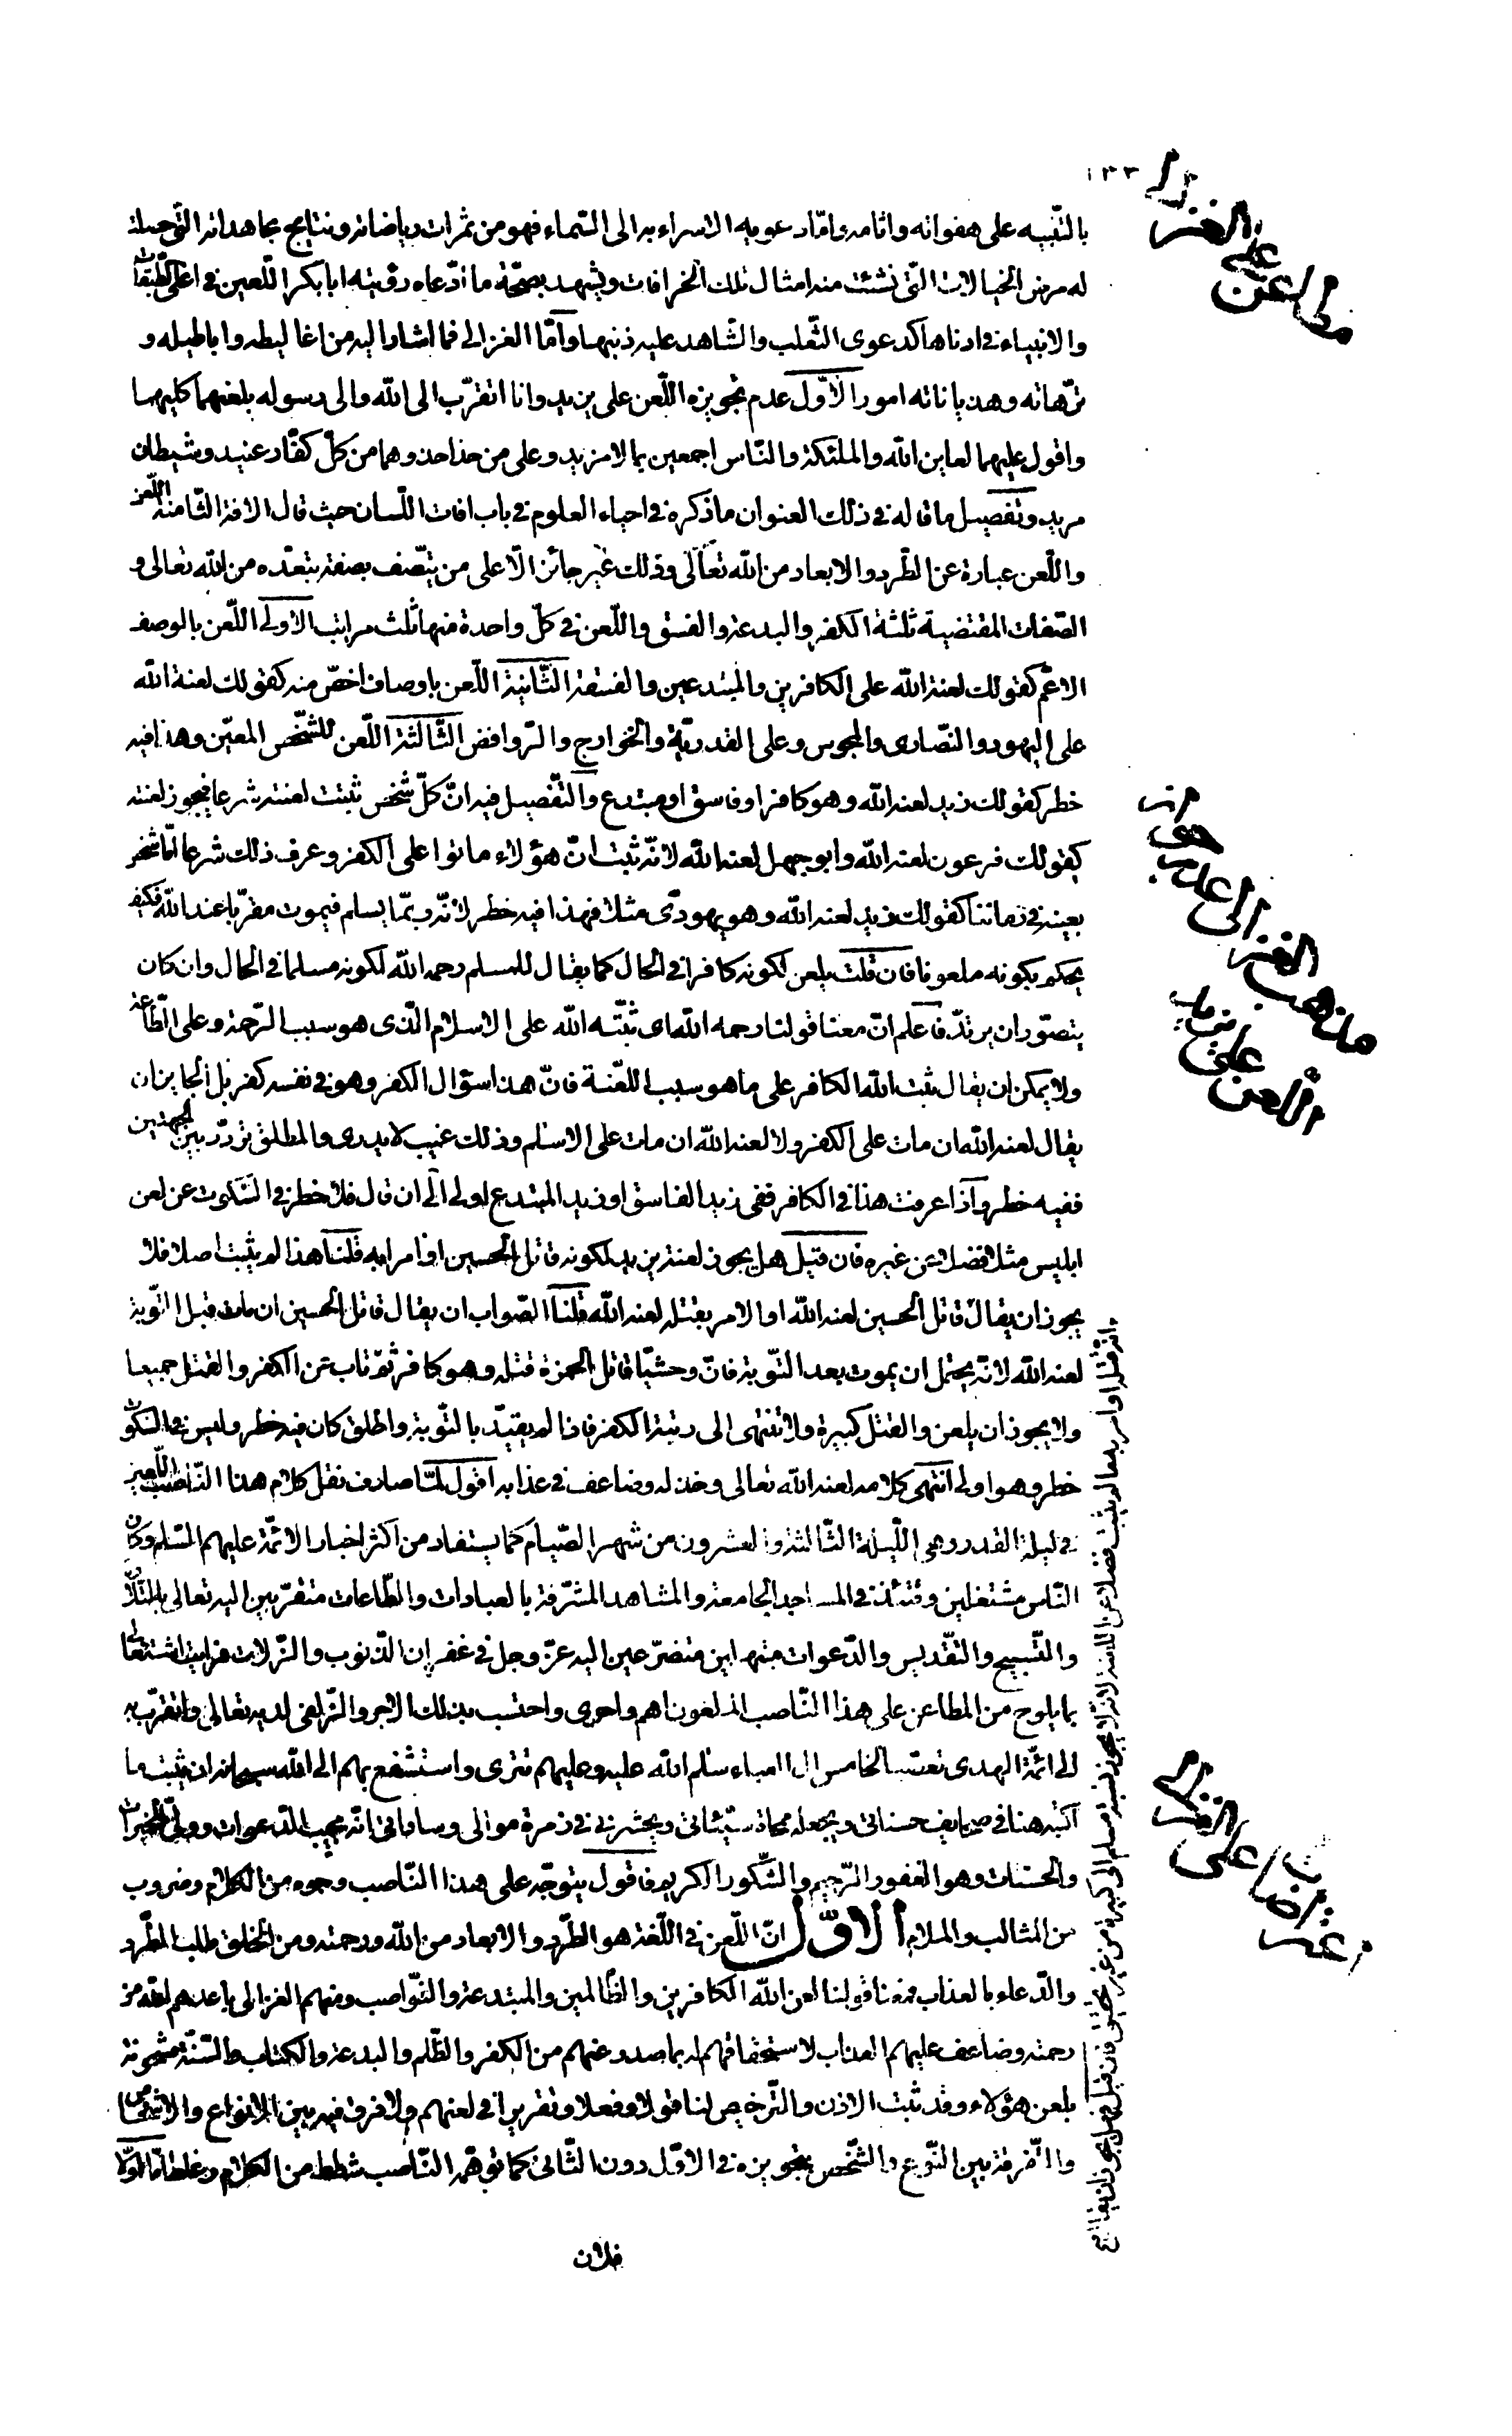 ١٣٣
مطاعن على الغزالي
بالتّنبيه على هفواته واثامه وامّا دعويه الاسراء به الى السّماء فهو من ثمرات رياضاته ونتايج مجاهداته الّتى حصلت
له مرض الخيالات الّتى نشئت منه امثال تلك الخرافات ويشهد بصحّة ما ادّعاه رؤيته ابابكر اللّعين فى اعلى الطّبقات
والانبياء فى ادناها كدعوى الثّعلب والشّاهد عليه ذنبها وامّا الغزالى فما اشار اليه من اغاليطه واباطيله و
ترّهاته وهذياناته امور الاوّل عدم تجويزه اللّعن على يزيد وانا اتقرّب الى الله والى رسوله بلعنهما كليهما
واقول عليهما لعاين الله والملئكة والنّاس اجمعين بما لا مزيد وعلى من حذا حذوهما من كلّ كفّار عنيد وشيطان
مريد وتفصيل ما قاله فى ذلك العنوان ما ذكره فى احياء العلوم فى باب افات اللّسان حيث قال الافة الثّامنة اللّعن
واللّعن عبارة عن الطّرد والابعاد من الله تعالى وذلك غير جائز الّا على من يتّصف بصفة تبعّده من الله تعالى و
الصّفات المقتضية ثلثة الكفر والبدعة والفسق واللّعن فى كلّ واحدة منها ثلث مراتب الاولى اللّعن بالوصف
الاعمّ كقولك لعنة الله على الكافرين والمبتدعين والفسقة الثّانية اللّعن باوصاف اخصّ منه كقولك لعنة الله
على اليهود والنّصارى والمجوس وعلى القدريّة والخوارج والرّوافض الثّالثة اللّعن للشّخص المعيّن وهذا فيه
خطر كقولك زيد لعنه الله وهو كافر او فاسق او مبتدع والتّفصيل فيه انّ كلّ شخص ثبتت لعنته شرعا فيجوز لعنته
كقولك فرعون لعنه الله وابوجهل لعنه الله لانّه ثبت انّ هؤلاء ماتوا على الكفر وعرف ذلك شرعا امّا شخص
بعينه فى زماننا كقولك زيد لعنه الله وهو يهودىّ مثلا فهذا فيه خطر لانّه ربّما يسلم فيموت مقرّبا عند الله فكيف
يحكم بكونه ملعونا فان قلت يلعن لكونه كافرا فى الحال كما يقال للمسلم رحمه الله لكونه مسلما فى الحال وان كان
يتصوّر ان يرتدّ فاعلم انّ معنا قولنا رحمه الله اى ثبّته الله على الاسلام الّذى هو سبب الرّحمة وعلى الطّاعة
ولا يمكن ان يقال ثبت الله الكافر على ما هو سبب اللعّنة فانّ هذا سؤال الكفر وهو فى نفسه كفر بل الجايز ان
يقال لعنه الله ان مات على الكفر ولا لعنه الله ان مات على الاسلم وذلك غيب لا يدرى والمطلق تردّد بين الجهتين
ففيه خطر واذا عرفت هذا فى الكافر ففى زيد الفاسق او زيد المبتدع اولى الى ان قال فلا خطر فى السّكوت عن لعن
ابليس مثلا فضلا عن غيره فان قيل هل يجوز لعنة يزيد لكونه قاتل الحسين او امرا به قلنا هذا لم يثبت اصلا فلا
يجوز ان يقال قاتل الحسين لعنه الله او الامر بقتله لعنه الله قلنا الصّواب ان يقال قاتل الحسين ان مات قبل التّوبة
لعنه الله لانّه يحتمل ان يموت بعد التّوبة فانّ وحشيّا قاتل الحمزة قتله وهو كافر ثمّ تاب عن الكفر والقتل جميعا
ولا يجوز ان يلعن والقتل كبيرة ولا تنتهى الى رتبة الكفر فاذا لم يقيّد بالتّوبة واطلق كان فيه خطر وليس فى السّكوت
خطر وهو اولى انتهى كلامه لعنه الله تعالى وخذله وضاعف فى عذابه اقول لمّا صادف نقل كلام هذا النّاصب اللّعين
فى ليلة القدر وهى اللّيلة الثّالثة والعشرون من شهر الصّيام كما يستفاد من اكثر اخبار الائمّة عليهم السّلم وكان
النّاس مشتغلين وقتئذ فى المساجد الجامعة والمشاهد المشرّفة بالعبادات والطّاعات متقرّبين اليه تعالى بالتّلاوة
والتّسبيح والتّقديس والدّعوات مبتهلين متضرّعين اليه عزّ وجل فى غفران الذّنوب والزّلات فرايت اشتغالى
بما يلوح من المطاعن على هذا النّاصب الملعون اهم واحرى واحتسب بذلك الاجر والزّلفى لديه تعالى واتقرّب به
الى ائمّة الهدى تعت الخامس ال العباء سلم الله عليه وعليهم تترى واستشفع بهم الى الله سبحانه ان يثبت ما
اكتبه هنا فى صحايف حسناتى ويجعله محاة سيّئاتى ويحشرنى فى زمرة موالى وساداتى انّه مجيب الدّعوات وولىّ الخيرات
والحسنات وهو الغفور الرّحيم والشّكور الكريم فاقول يتوجّه على هذا النّاصب وجوه من الكلام وضروب
من المثالب والملام الاوّل انّ اللّعن فى اللّغة هو الطّرد والابعاد من الله ورحمته ومن الخلق طلب الطّرد
والدّعاء بالعذاب فمعنا قولنا لعن الله الكافرين والظّالمين والمبتدعة والنّواصب ومنهم الغزالى باعدهم الله من
رحمته وضاعف عليهم العذاب لاستحقاقهم له بما صدر عنهم من الكفر والظّلم والبدعة والكتاب والسّنّة مشحونة
بلعن هؤلاء وقد ثبت الاذن والتّرخيص لنا قولا وفعلا وتقريرا فى لعنهم ولا فرق فيه بين الانواع والاشخاص
والتّفرقة بين النّوع والشّخص بتجويزه فى الاوّل دون الثّانى كما توهّمه النّاصب شطط من الكلام وغلط امّا اوّلا
فلان
انه قتله او امر به ما لم يثبت فضلا عن اللعنة لانه لا يجوز نسبة مسلم الى كبيرة من غير تحقيق فان قيل فهل يجوز ان يقال
مذهب الغزالي
اللّعن على
اعتراضات على الغزالي